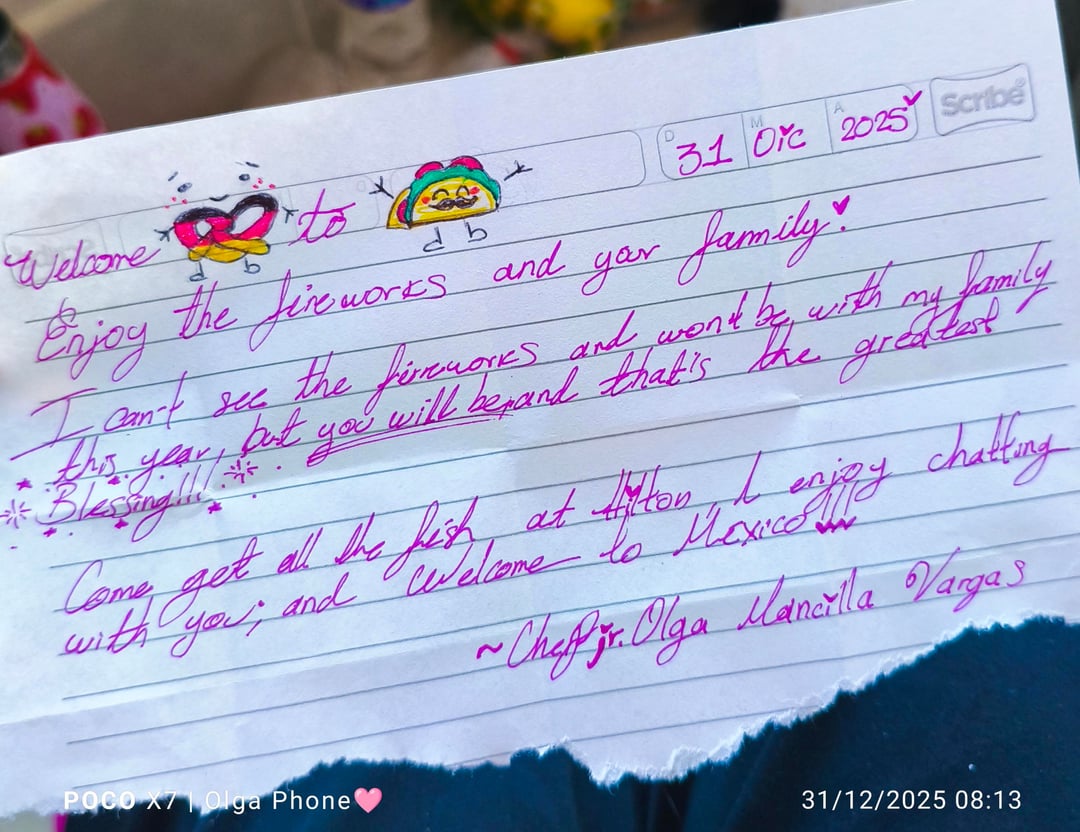 Scribe
D 31 M Dic A 2025
Welcome to
Enjoy the fireworks and your family!
I can't see the fireworks and won't be with my family
this year, but you will be, and that's the greatest
Blessing!!!
Come get all the fish at Hilton, I enjoy chatting
with you; and Welcome to Mexico!!!
~Chef jr. Olga Mancilla Vargas
POCO X7 | Olga Phone🩷
31/12/2025 08:13